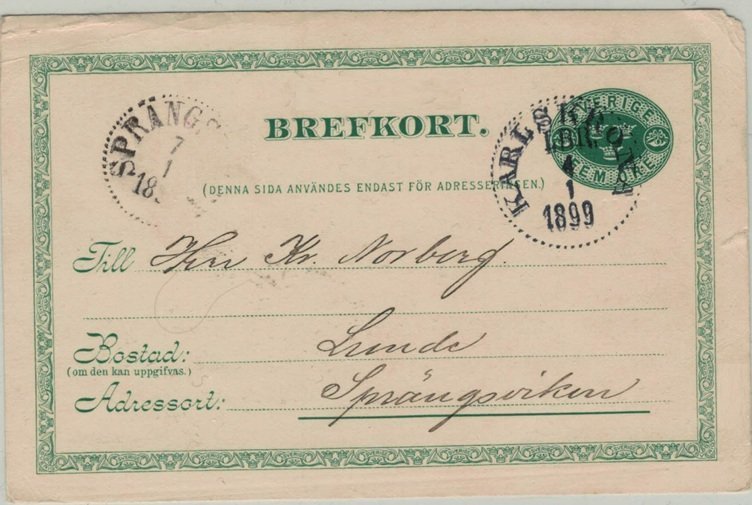 SPRÄNGS
7
1
18
BREFKORT.
(DENNA SIDA ANVÄNDES ENDAST FÖR ADRESSERINGEN.)
SVERIGE
FEM ÖRE
KARLSKRONA
1 BR.
4
1
1899
Till Herr Kr. Norberg.
Bostad: Lunde
(om den kan uppgifvas.)
Adressort: Sprängsviken